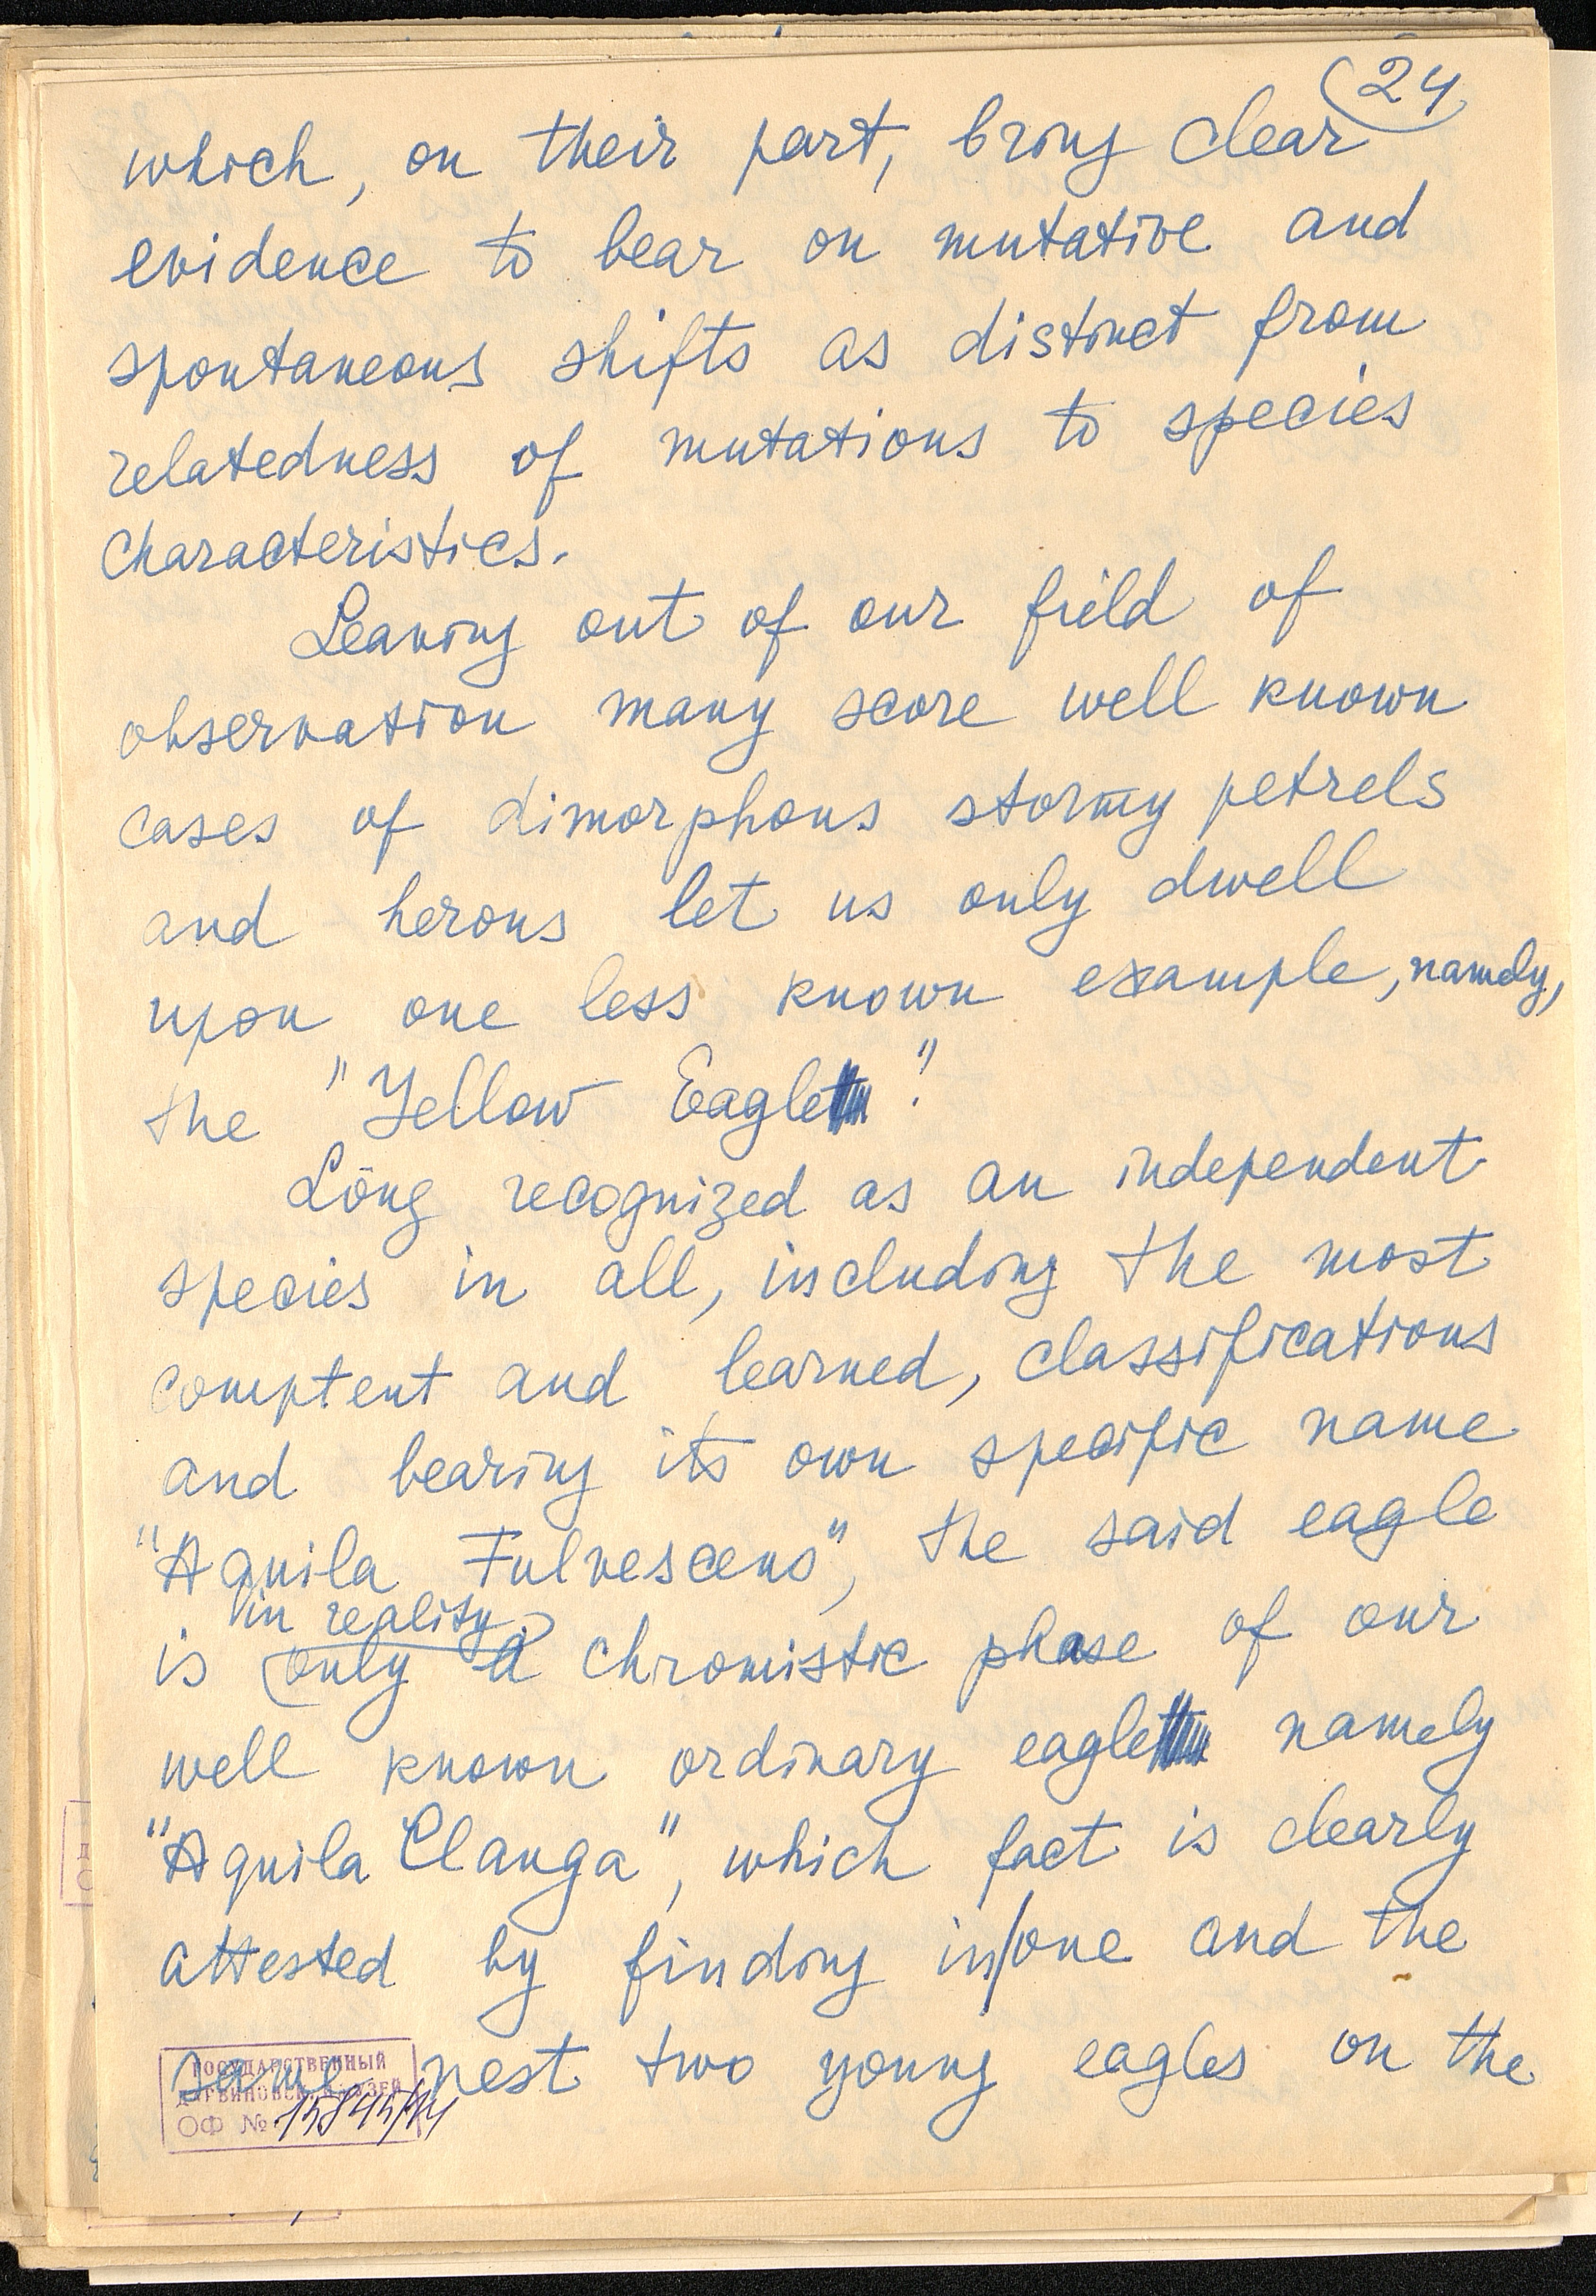 24
which, on their part, bring clear
evidence to bear on mutative and
spontaneous shifts as distinct from
relatedness of mutations to species
characteristics.
Leaving out of our field of
observation many score well known
cases of dimorphous stormy petrels
and herons let us only dwell
upon one less known example, namely,
the "Yellow Eagle".
Long recognized as an independent
species in all, including the most
comptent and learned, classifications
and bearing its own specific name
"Aquila Fulvescens", the said eagle
in reality
is only a chromistic phase of our
well known ordinary eagle namely
"Aquila Clanga", which fact is clearly
attested by finding in/one and the
same nest two young eagles on the
ГОСУДАРСТВЕННЫЙ
ДАРВИНОВСКИЙ МУЗЕЙ
ОФ №